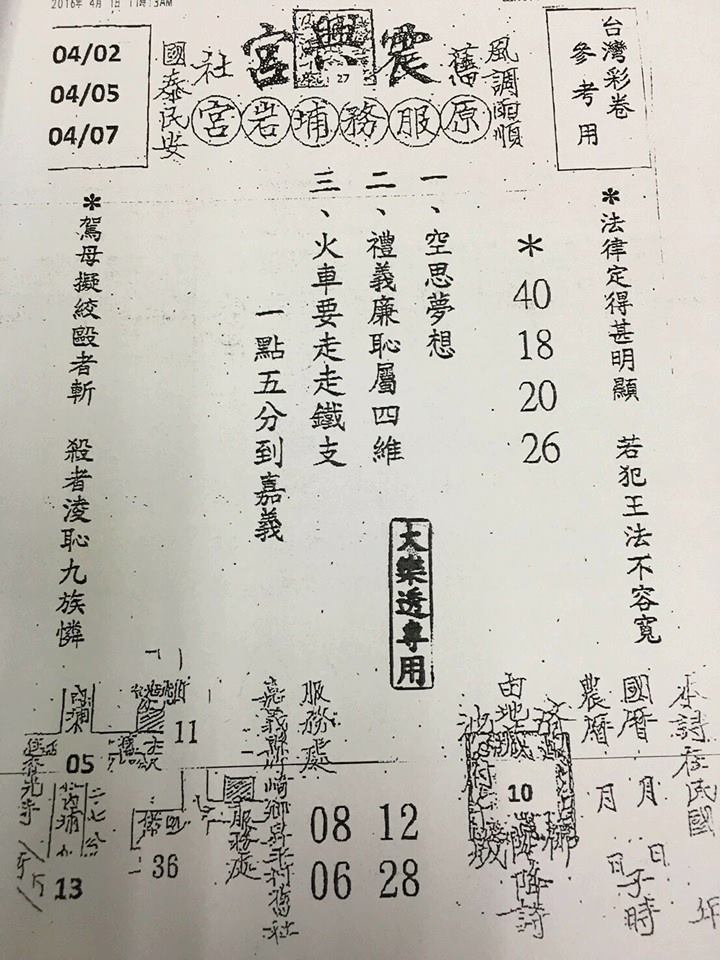 2016年 4月 1日 11時13AM
台灣彩卷
參考用
風調雨順
舊
震興宮
27
社
國泰民安
原服務埔岩宮
04/02
04/05
04/07
*法律定得甚明顯 若犯王法不容寬
*
40
18
20
26
一、空思夢想
二、禮義廉恥屬四維
三、火車要走走鐵支
一點五分到嘉義
大樂透專用
*駕母擬絞毆者斬 殺者淩恥九族憐
本詩在民國 年
國曆 月 日子時
農曆 月 日
10
降詩
服務處
嘉義縣竹崎鄉昇平村舊社
08 12
06 28
服務處
11
36
05
13